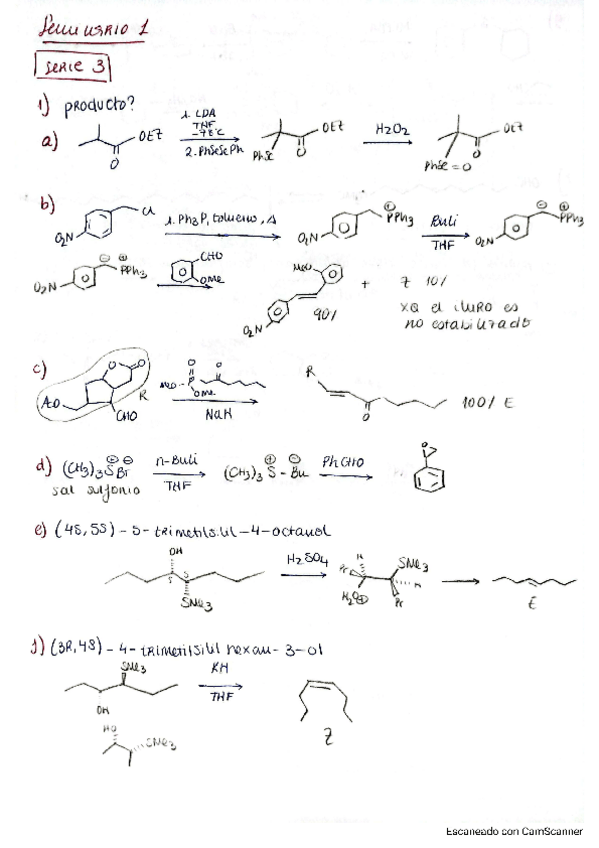 Seminario 1
Serie 3
1) producto?
a) OEt O 1. LDA THF -78ºC 2. PhSeSePh PhSe O OEt H2O2 PhSe=O O OEt
b) O2N Cl 1. Ph3P, tolueno, Δ O2N PPh3 BuLi THF O2N PPh3
O2N PPh3 CHO OMe MeO O2N 90% + Z 10%
XQ el iluro es
no estabilizado
c) AcO O O CHO R MeO P O OMe O NaH R O 100% E
d) (CH3)3 S Br n-BuLi THF (CH3)3 S - Bu PhCHO O
sal sulfonio
e) (4S,5S) - 5 - trimetilsilil - 4 - octanol
OH S S SMe3 H2SO4 H Pr H2O SMe3 H Pr E
f) (3R,4S) - 4 - trimetilsilil hexan - 3 - ol
SMe3 OH KH THF Z
HO SMe3
Escaneado con CamScanner